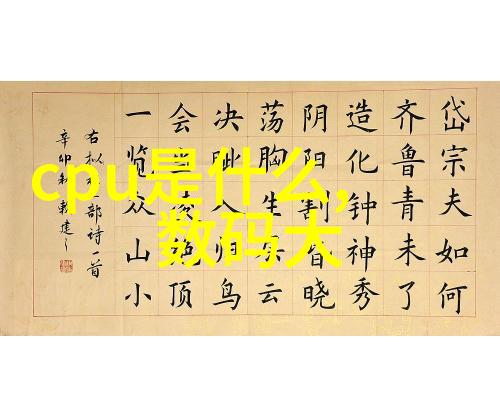 cpu是什么,
数码大
岱宗夫如何
齐鲁青未了
造化钟神秀
阴阳割昏晓
荡胸生云
决眦入归鸟
会当凌绝顶
一览众山小
右拟部诗一首
辛卯